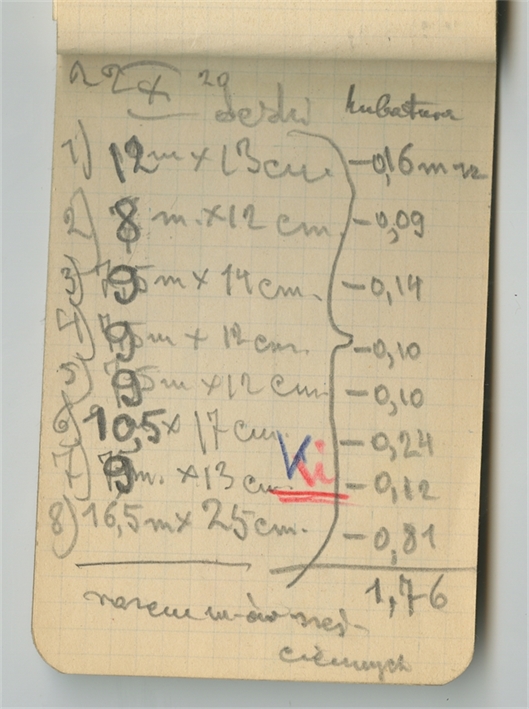 22 X 29 deski kubatura
1) 12 m x 13 cm. - 0,16 m
2) 8 m. x 12 cm - 0,09
3) 9 m x 14 cm. - 0,14
4) 9 m x 12 cm. - 0,10
5) 9 m x 12 cm - 0,10
6) 10,5 x 17 cm - 0,24
7) 9 m. x 13 cm - 0,12
Ki
8) 16,5 m x 25 cm. - 0,81
1,76
razem m-ów sześ-
ciennych